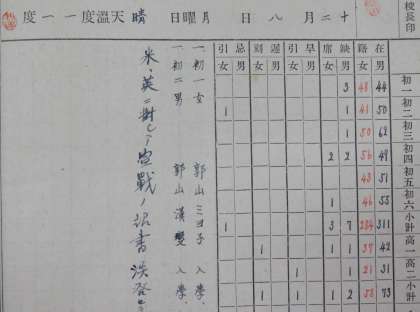 校長印
十二月八日 月曜日 晴 天溫度一一度
在 男
籍 女
缺 男
席 女
早 男
引 女
遲 男
刻 女
忌 男
引 女
初一 44 48 3
初二 50 41 1 1
初三 62 50 1
初四 49 56 2 2
初五 51 43
初六 55 46 1
小計 311 284 7 3 1
高一 42 37 1 1 1
高二 31 21 1
小計 73 58 2 1 1 1
一、初一女 郭山三ヨ子 入學、
一、初二男 郭山漢雙 入學、
米、英ニ對シテ宣戰ノ詔書渙發